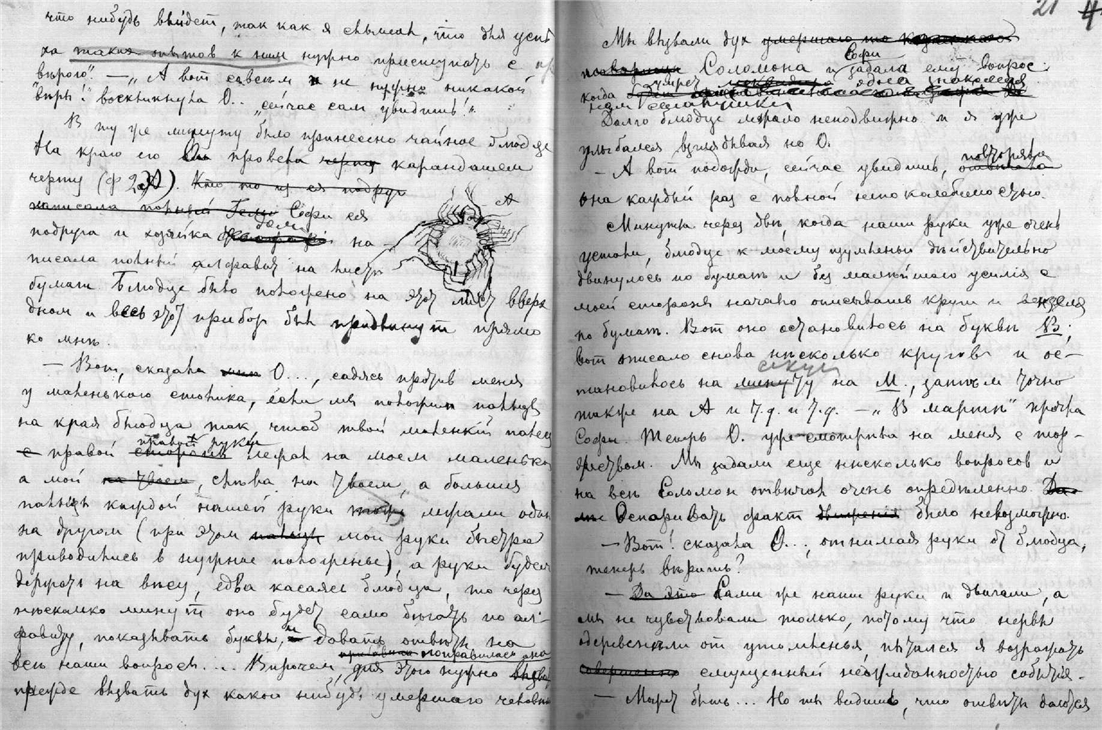 что нибудь выйдет, так как я слышал, что для успѣ
ха таких опытов к ним нужно приступать с
вѣрою". — „А вот совсем и не нужно никакой
вѣры!" воскликнула О.. „сейчас сам увидишь".
В ту же минуту было принесено чайное блюдце
На краю его провела карандашем
черту (ф 2
Софи ея
подруга и хозяйка на-
А
писала полный алфавит на листѣ
бумаги Блюдце было положено на этот лист вверх
дном и весь этот прибор был придвинут прямо
ко мнѣ.
— Вот, сказала О..., садясь против меня
у маленького столика, если мы положим пальцы
на края блюдца так чтоб твой маленький палец
правой руки
правой лежал на моем маленьком
а мой , слѣва на твоем, а большие
пальцы каждой нашей руки лежали один
на другом (при этом мои руки быстро
приводились в нужное положенье), а руки будем
держать на вѣсу, едва касаясь блюдца, то через
нѣсколько минут оно будет само бѣгать по ал-
фавиту, показывать буквы, и давать отвѣты на
всѣ наши вопросы... Впрочем, для этого нужно
поправилась она
прежде вызвать дух какой нибудь умершаго человѣ
21 4
Мы вызвали дух
Соломона и Софи задала ему вопрос:
когда умрет одна знакомая
нам старушка
Долго блюдце лежало неподвижно и я уже
улыбался взглядывая на О.
— А вот подожди, сейчас увидишь, повторяла
она каждый раз с полной непоколебимостью.
Минуты через двѣ, когда наши руки уже очень
устали, блюдце к моему изумленью дѣйствительно
двинулось по бумагѣ и без малѣйшаго усилія с
моей стороны начало описывать круги и вензеля
по бумагѣ. Вот оно остановилось на буквѣ В;
вот описало снова нѣсколько кругов и ос-
тановилось на секунду на М., затѣм точно
также на А и т.д. и т.д. — „В мартѣ" прочла
Софи. Теперь О. уже смотрѣла на меня с тор-
жеством. Мы задали еще нѣсколько вопросов и
на всѣ Соломон отвѣчал очень опредѣленно.
Оспаривать факт было невозможно.
— Вот! сказала О..., отнимая руки от блюдца,
теперь вѣришь?
— Да это Сами же наши руки и двигали, а
мы не чувствовали только, потому что нервы
одеревенѣли от утомленья пытался я возражать
смущенный неожиданностью событья.
— Может быть... Но ты видишь, что отвѣты даются